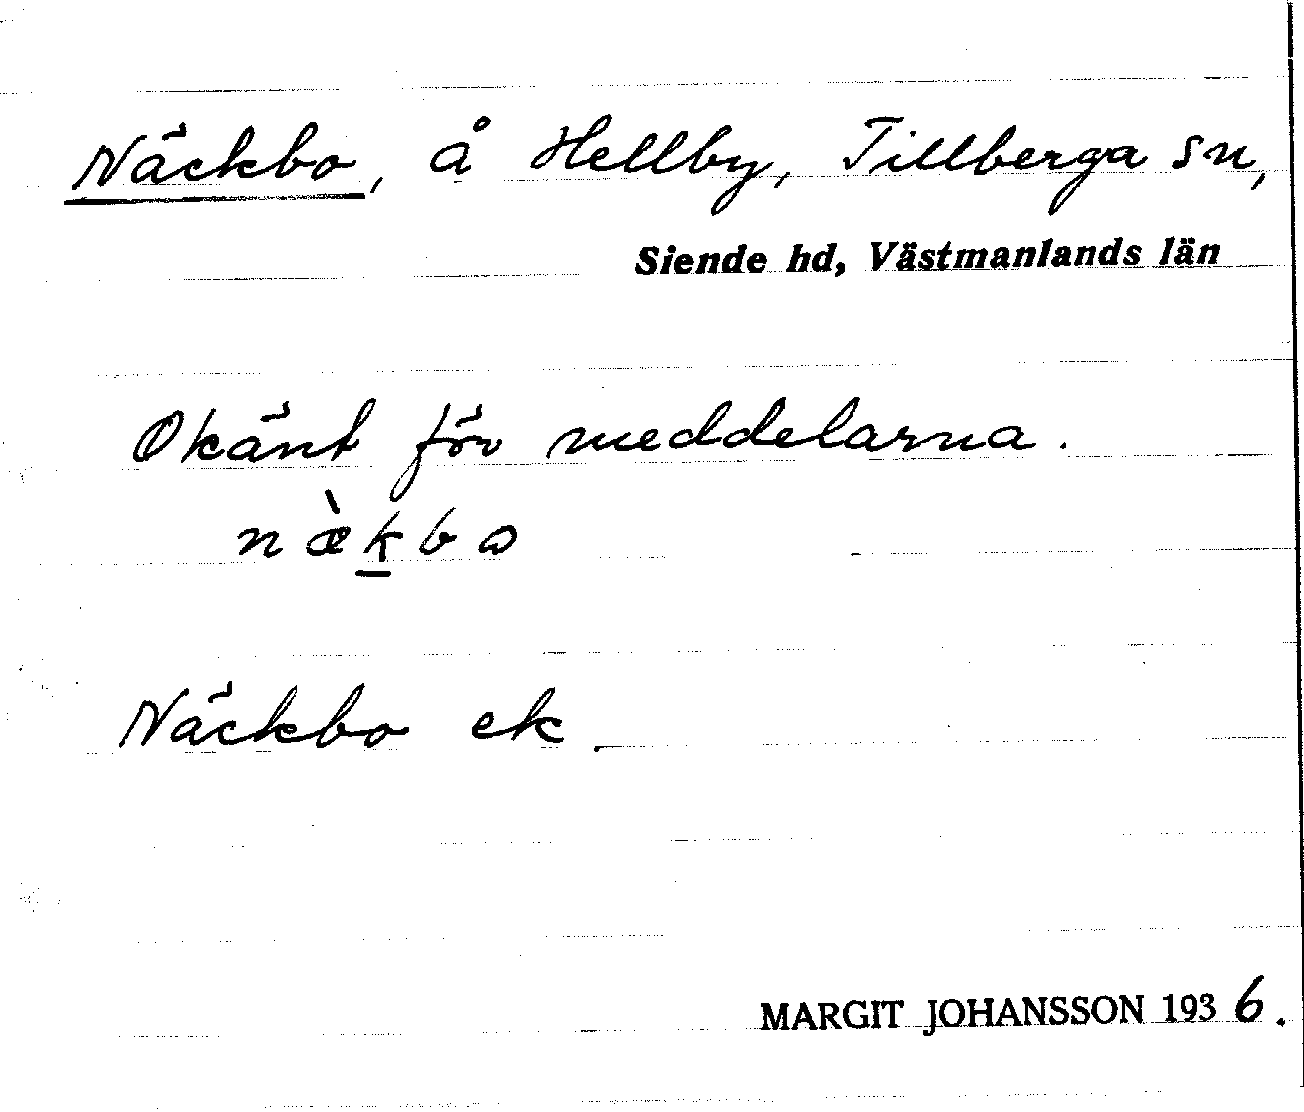 Näckbo, å Hellby, Tillberga sn,
Siende hd, Västmanlands län
Okänt för meddelarna.
næ̀k̲bω
Näckbo ek
MARGIT JOHANSSON 1936.